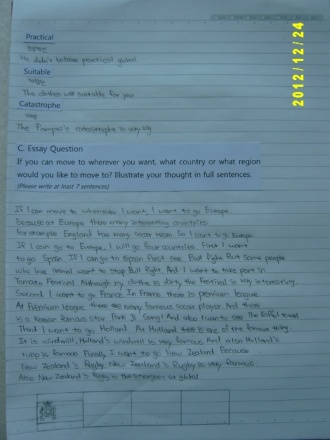 2012/12/24
Practical
He didn't believe practical global
Suitable
The clothes will suitable for you
Catastrophe
The Pompei's catastrophe is very big
C. Essay Question
If you can move to wherever you want, what country or what region
would you like to move to? Illustrate your thought in full sentences.
(Please write at least 7 sentences)
If I can move to wherever I want, I want to go Europe.
Because at Europe there many interesting countries.
For example England has many soccer team. So I want to go Europe
If I can go to Europe, I will go four countries. First I want
to go Spain. If I can go to Spain first see Bull fight. But some people
who love animal want to stop Bull fight. And I want to take part in
Tomato Festival. Although my clothes is dirty the Festival is very interesting.
Second I want to go France. In France there is premium league.
At Premium league there are many famous soccer player. And there
is a Korean famous star Park Ji Sung! And also I want to see the Eiffel tower!
Third I want to go Holland. At Holland there is one of the famous thing.
It is windmill, Holland's windmill is very famous. And also Holland's
tulip is famous. Finally I want to go New Zealand. Because
New Zealand is Rugby. New Zealand's Rugby is very famous.
Also New Zealand's Rugby is the strongest at global